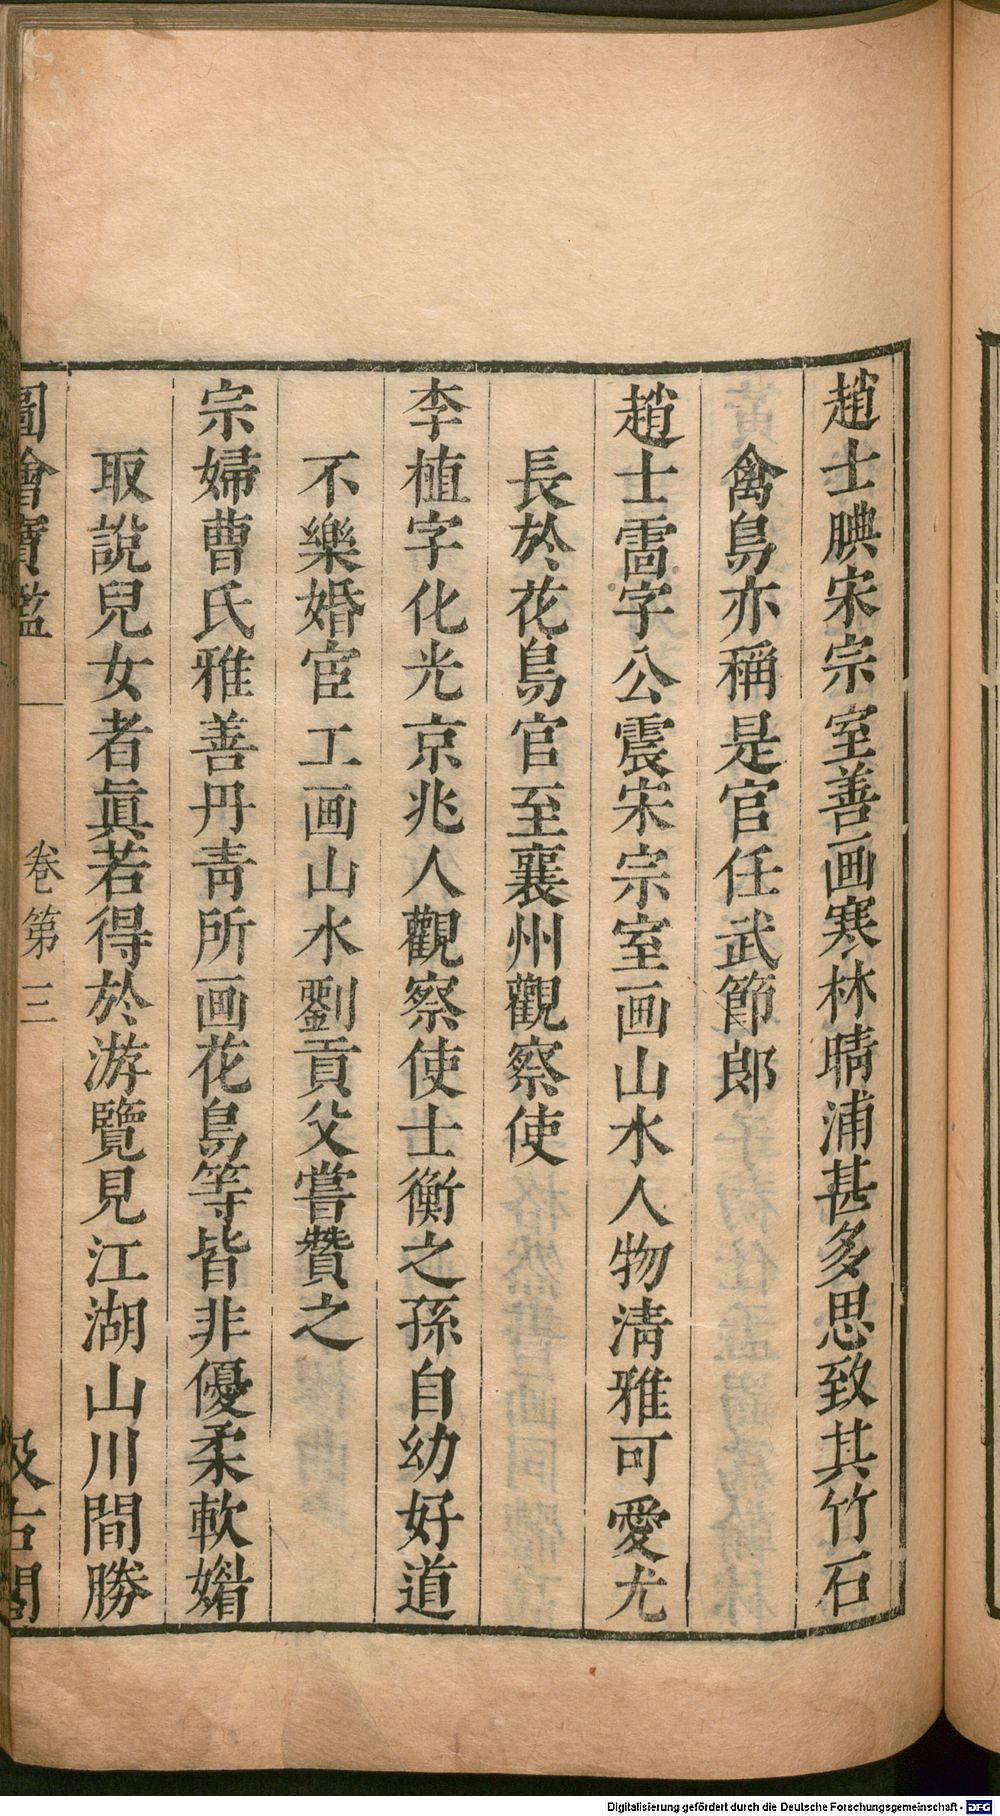 趙士腆宋宗室善画寒林晴浦甚多思致其竹石
禽鳥亦稱是官任武節郎
趙士雷字公震宋宗室画山水人物清雅可愛尤
長於花鳥官至襄州觀察使
李植字化光京兆人觀察使士衡之孫自幼好道
不樂婚宦工画山水劉貢父嘗贊之
宗婦曹氏雅善丹青所画花鳥等皆非優柔軟媚
取說兒女者眞若得於游覽見江湖山川間勝
圖繪寶鑑 卷第三 汲古閣
Digitalisierung gefördert durch die Deutsche Forschungsgemeinschaft - DFG